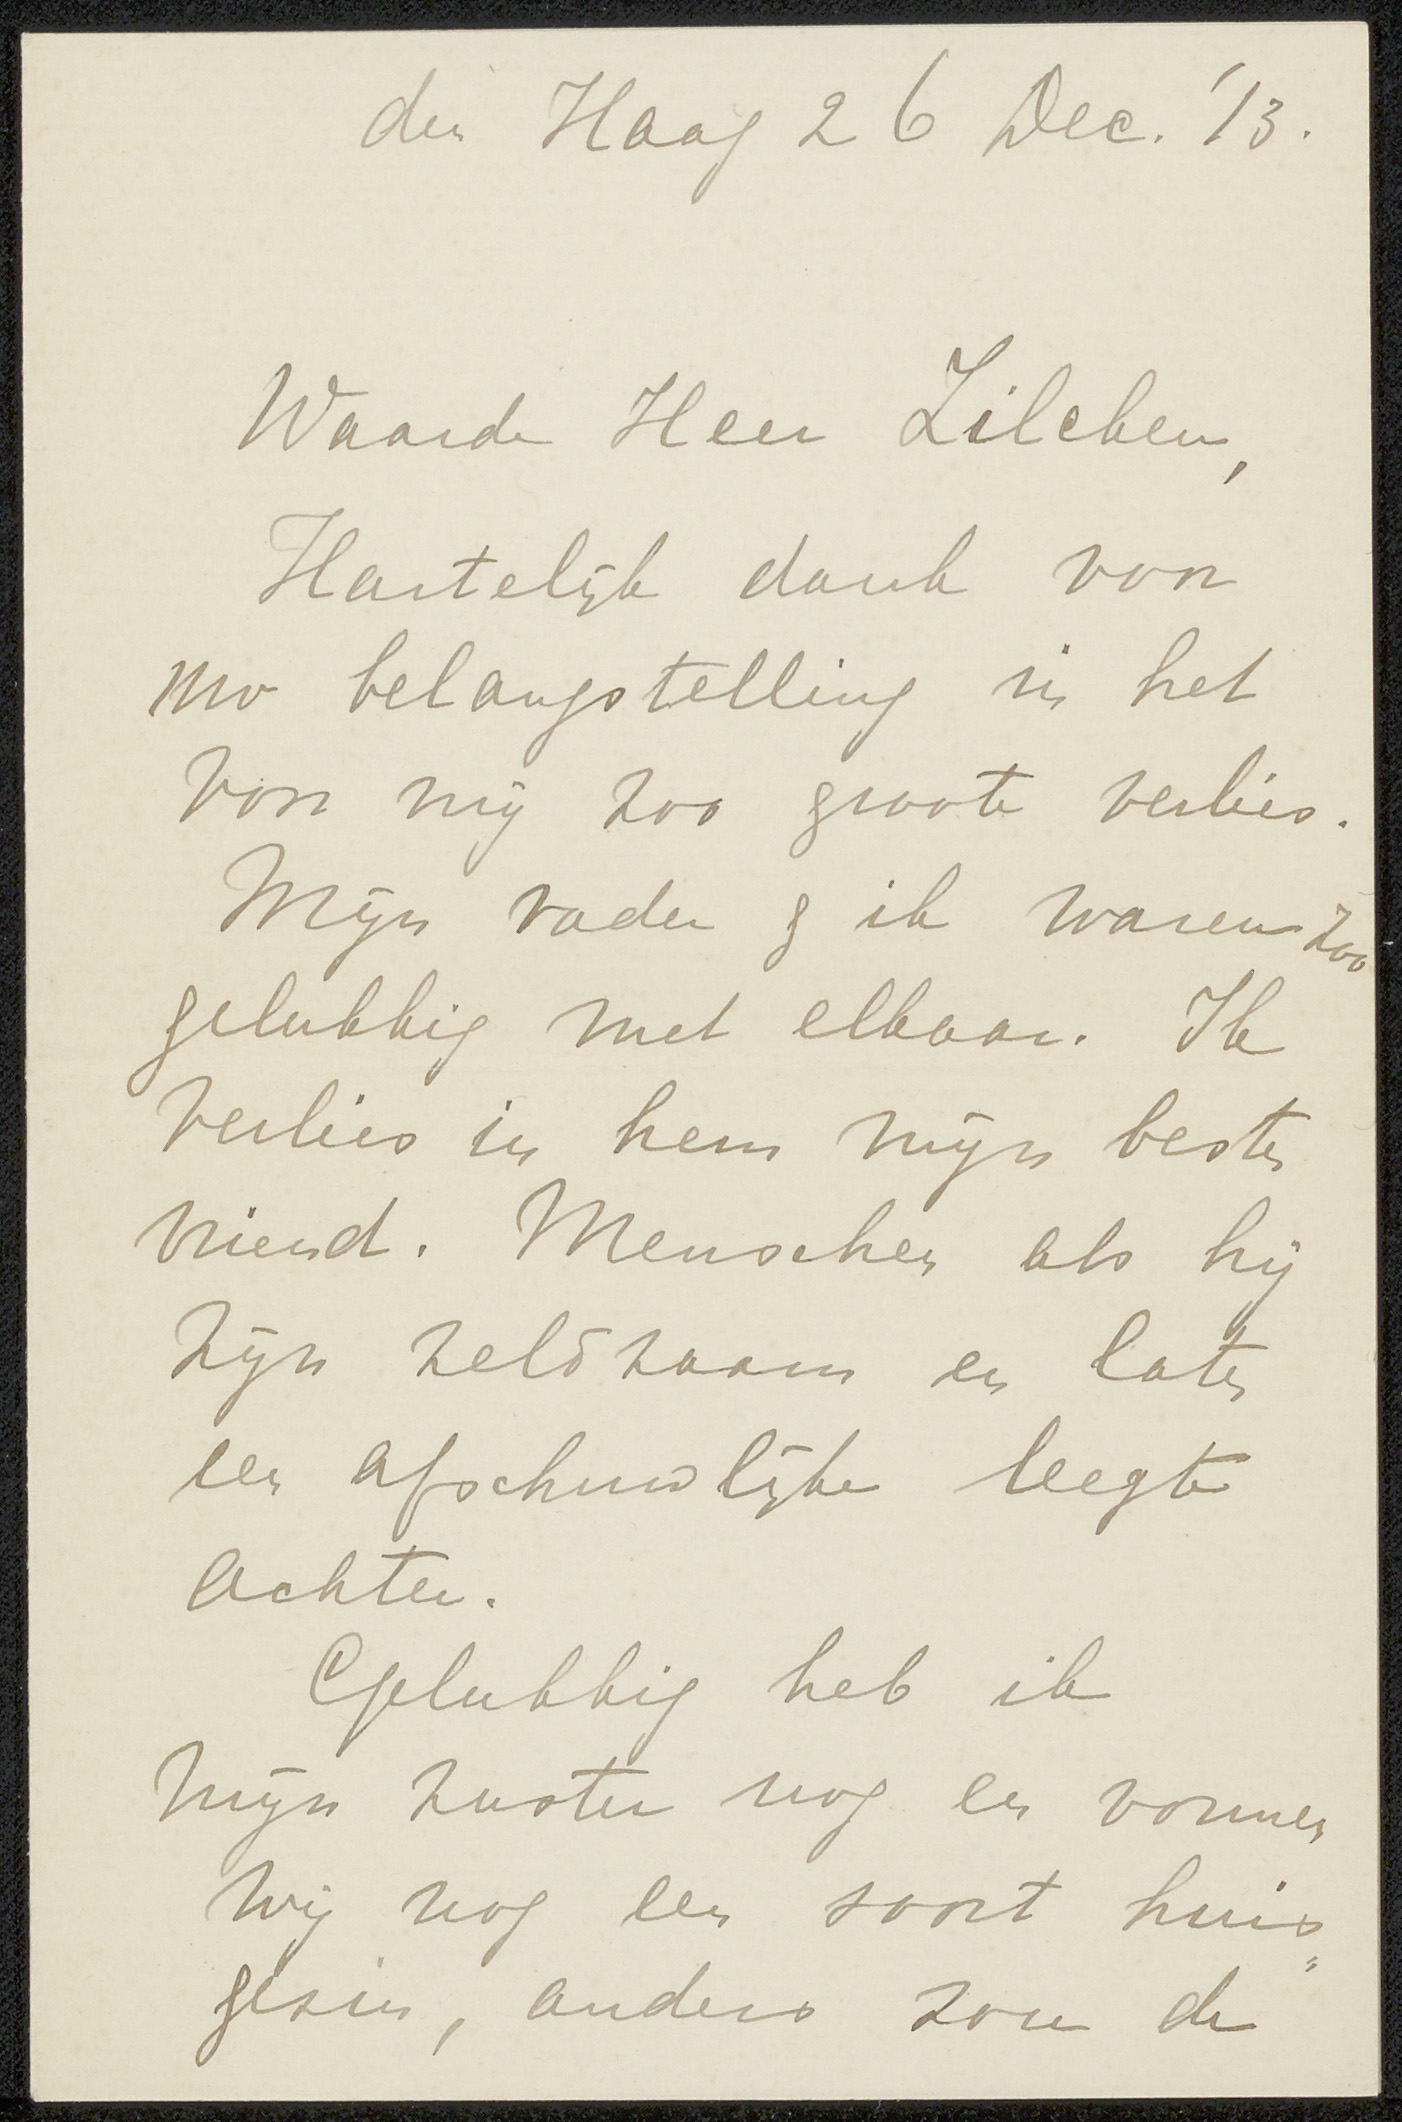 den Haag 26 Dec. '13.
Waarde Heer Zilcken,
Hartelijk dank voor
uw belangstelling in het
voor mij zoo groote verlies.
Mijn vader & ik waren zoo
gelukkig met elkaar. Ik
verlies in hem mijn besten
vriend. Menschen als hij
zijn zeldzaam en laten
een afschuwlijke leegte
achter.
Gelukkig heb ik
mijn zuster nog en vormen
wij nog een soort huis„
gezin, anders zou de